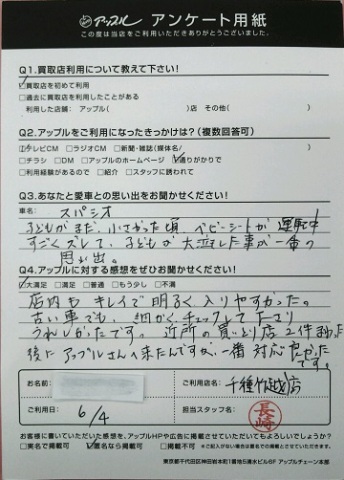 アップル アンケート用紙
この度は当店をご利用いただきありがとうございました。
Q1.買取店利用について教えて下さい!
☑買取店を初めて利用
□過去に買取店を利用したことがある
利用した店舗:アップル( )店 その他( )
Q2.アップルをご利用になったきっかけは?(複数回答可)
☑テレビCM □ラジオCM □新聞・雑誌(媒体名/ )
□チラシ □DM □アップルのホームページ ☑通りがかりで
□利用経験があるので □紹介 □スタッフに誘われて
Q3.あなたと愛車との思い出をお聞かせください!
車名: スパシオ
子どもがまだ、小さかった頃、ベビーシートが運転中
すごくズレて、子どもが大泣した事が一番の
思い出。
Q4.アップルに対する感想をぜひお聞かせください!
☑大満足 □満足 □普通 □もう少し □不満
店内も キレイで 明るく 入りやすかった。
古い車でも、細かくチェックして下さり
うれしかったです。近所の買いとり店2件
後に アップルさんへ来たんですが、一番 対応 よかった
です。
お名前:
ご利用店名: 千種竹越店
ご利用日: 6/4
担当スタッフ名: 長崎
お客様に書いていただいた感想を、アップルHPや広告に掲載させていただいてもよろしいでしょうか?
□実名で掲載可 ☑匿名なら掲載可 □掲載不可
東京都千代田区神田岩本町1番地5清水ビル6F アップルチェーン本部